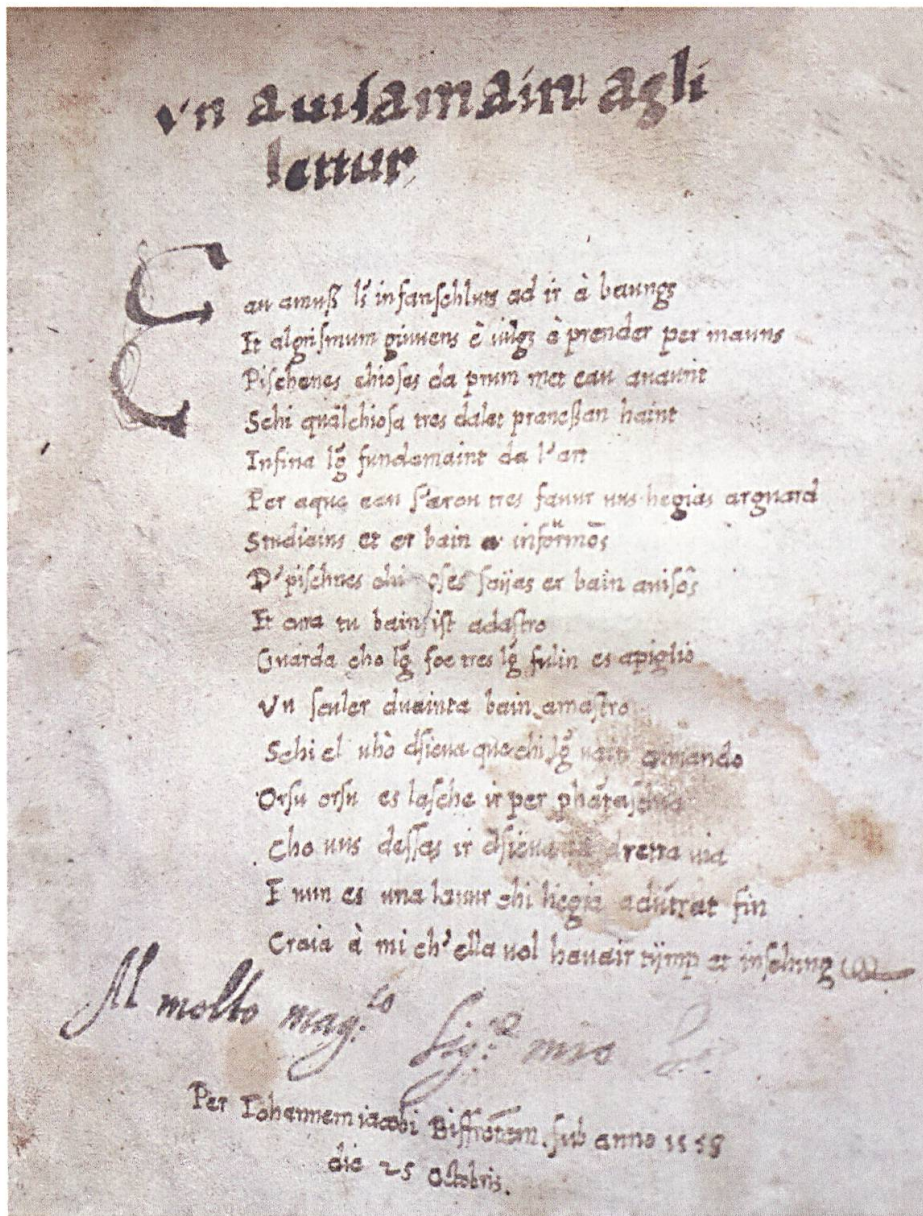 Vn auisamaint agli
lettur
Eau amuß lʒ infanschluns ad ir à baungs
Et algrismum giuuens è uilgz è prender per mauns
Pischenes chioses da prum met eau auaunt
Schi quälchiosa tres dalet prancßan haint
Infina lg̃ fundamaint da l'art
Per aque eau s'aron tres fauur uns hegias arguard
Studiains et er bain informos
D'pischnes chioses saijas er bain auisôs
Et cura tu bain ist adastro
Guarda cho lg̃ foe tres lg̃ fulin es apiglio
Vn scular duainta bain amastro
Schi el uhò dsieua que chi lg̃ uain amando
Orsu orsu es lasche ir per phatascha
Cho uus dessas ir dsieua la dretta uia
E nun es una lauur chi hegia adütrat fin
Craia à mi ch'ella uol hauair tijmp et insching
Al molto mag.co Sig.r mio
Per Iohannem iacobi Biffrontem sub anno 1558
die 25 Octobris.